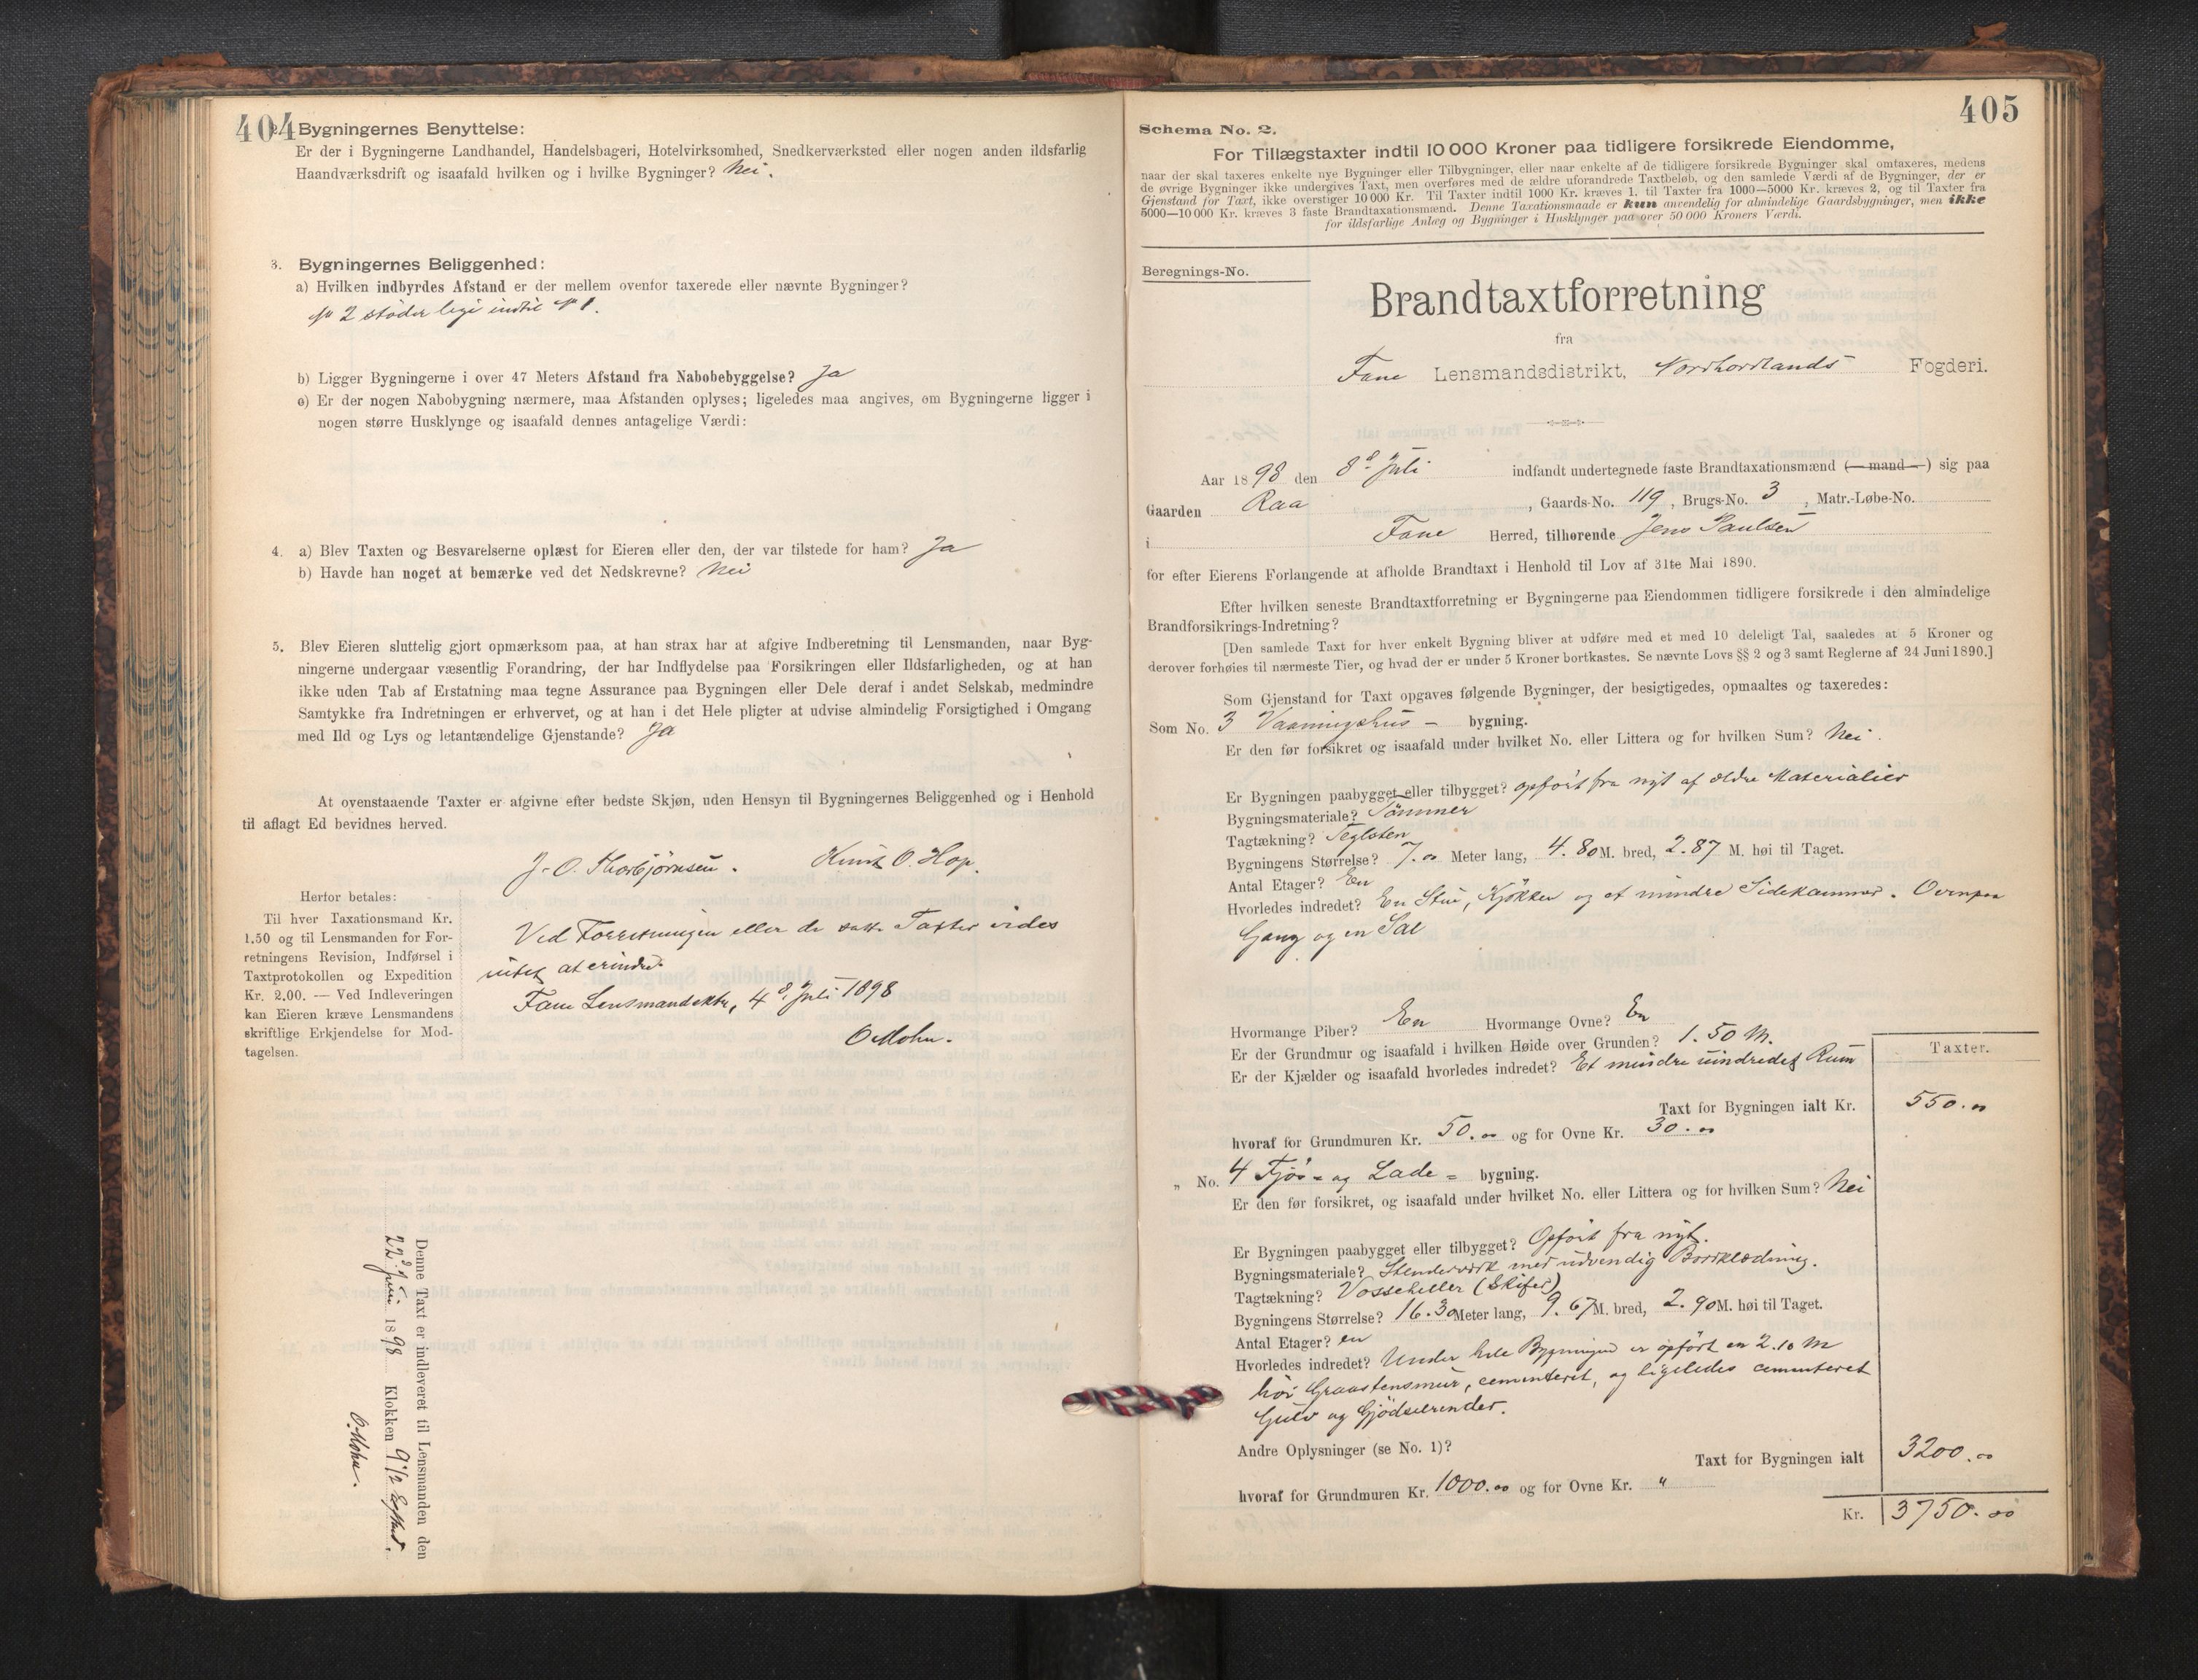 404
2. Bygningernes Benyttelse:
Er der i Bygningerne Landhandel, Handelsbageri, Hotelvirksomhed, Snedkerværksted eller nogen anden ildsfarlig
Haandværksdrift og isaafald hvilken og i hvilke Bygninger? Nei.
3. Bygningernes Beliggenhed:
a) Hvilken indbyrdes Afstand er der mellem ovenfor taxerede eller nævnte Bygninger?
No 2 støder lige indtil No 1.
b) Ligger Bygningerne i over 47 Meters Afstand fra Nabobebyggelse? Ja
c) Er der nogen Nabobygning nærmere, maa Afstanden oplyses; ligeledes maa angives, om Bygningerne ligger i
nogen større Husklynge og isaafald dennes antagelige Værdi:
4. a) Blev Taxten og Besvarelserne oplæst for Eieren eller den, der var tilstede for ham? Ja
b) Havde han noget at bemærke ved det Nedskrevne? Nei
5. Blev Eieren sluttelig gjort opmærksom paa, at han strax har at afgive Indberetning til Lensmanden, naar Byg-
ningerne undergaar væsentlig Forandring, der har Indflydelse paa Forsikringen eller Ildsfarligheden, og at han
ikke uden Tab af Erstatning maa tegne Assurance paa Bygningen eller Dele deraf i andet Selskab, medmindre
Samtykke fra Indretningen er erhvervet, og at han i det Hele pligter at udvise almindelig Forsigtighed i Omgang
med Ild og Lys og letantændelige Gjenstande? Ja
At ovenstaaende Taxter er afgivne efter bedste Skjøn, uden Hensyn til Bygningernes Beliggenhed og i Henhold
til aflagt Ed bevidnes herved.
J. O. Thorbjørnsen. Knut O. Hop.
Herfor betales:
Til hver Taxationsmand Kr.
1.50 og til Lensmanden for For-
retningens Revision, Indførsel i
Taxtprotokollen og Expedition
Kr. 2.00. — Ved Indleveringen
kan Eieren kræve Lensmandens
skriftlige Erkjendelse for Mod-
tagelsen.
Ved Forretningen eller de satte Taxter vides
intet at erindre.
Fane Lensmandsktr, 4d Juli 1898
O Mohn.
Denne Taxt er indleveret til Lensmanden den
22d Juli 1898 Klokken 9 1/2 Efterm.
O. Mohn.
405
Schema No. 2.
For Tillægstaxter indtil 10 000 Kroner paa tidligere forsikrede Eiendomme,
naar der skal taxeres enkelte nye Bygninger eller Tilbygninger, eller naar enkelte af de tidligere forsikrede Bygninger skal omtaxeres, medens
de øvrige Bygninger ikke undergives Taxt, men overføres med de ældre uforandrede Taxtbeløb, og den samlede Værdi af de Bygninger, der er
Gjenstand for Taxt, ikke overstiger 10 000 Kr. Til Taxter indtil 1000 Kr. kræves 1, til Taxter fra 1000—5000 Kr. kræves 2, og til Taxter fra
5000—10 000 Kr. kræves 3 faste Brandtaxationsmænd. Denne Taxationsmaade er kun anvendelig for almindelige Gaardsbygninger, men ikke
for ildsfarlige Anlæg og Bygninger i Husklynger paa over 50 000 Kroners Værdi.
Beregnings-No.
Brandtaxtforretning
fra
Fane Lensmandsdistrikt, Nordhordlands Fogderi.
Aar 1898 den 8d Juli indfandt undertegnede faste Brandtaxationsmænd (— mand —) sig paa
Gaarden Raa, Gaards-No. 119, Brugs-No. 3, Matr.-Løbe-No.
i Fane Herred, tilhørende Jens Paulsen
for efter Eierens Forlangende at afholde Brandtaxt i Henhold til Lov af 31te Mai 1890.
Efter hvilken seneste Brandtaxtforretning er Bygningerne paa Eiendommen tidligere forsikrede i den almindelige
Brandforsikrings-Indretning?
[Den samlede Taxt for hver enkelt Bygning bliver at udføre med et med 10 deleligt Tal, saaledes at 5 Kroner og
derover forhøies til nærmeste Tier, og hvad der er under 5 Kroner bortkastes. Se nævnte Lovs §§ 2 og 3 samt Reglerne af 24 Juni 1890.]
Som Gjenstand for Taxt opgaves følgende Bygninger, der besigtigedes, opmaaltes og taxeredes:
Som No. 3 Vaaningshus - bygning.
Er den før forsikret og isaafald under hvilket No. eller Littera og for hvilken Sum? Nei.
Er Bygningen paabygget eller tilbygget? opført fra nyt af ældre Materialier
Bygningsmateriale? Tømmer
Tagtækning? Teglsten
Bygningens Størrelse? 7.00 Meter lang, 4.80 M. bred, 2.87 M. høi til Taget.
Antal Etager? En
Hvorledes indredet? En Stue, Kjøkken og et mindre Sidekammer. Ovenpaa
Gang og en Sal
Hvormange Piber? En Hvormange Ovne? En
Er der Grundmur og isaafald i hvilken Høide over Grunden? 1.50 M.
Er der Kjælder og isaafald hvorledes indredet? Et mindre uindredet Rum
Taxter.
Taxt for Bygningen ialt Kr. 550.00
hvoraf for Grundmuren Kr. 50.00 og for Ovne Kr. 30.00
„ No. 4 Fjøs - og Lade - bygning.
Er den før forsikret, og isaafald under hvilket No. eller Littera og for hvilken Sum? Nei
Er Bygningen paabygget eller tilbygget? Opført fra nyt.
Bygningsmateriale? Stenderverk med udvendig Bordklædning.
Tagtækning? Vosseheller (Skifer)
Bygningens Størrelse? 16.30 Meter lang, 9.67 M. bred, 2.90 M. høi til Taget.
Antal Etager? en
Hvorledes indredet? Under hele Bygningen er opført en 2.10 M
høi Graastensmur, cementeret, og ligeledes cementeret
Gulv og Gjødselrender.
Andre Oplysninger (se No. 1)?
Taxt for Bygningen ialt 3200.00
hvoraf for Grundmuren Kr. 1000.00 og for Ovne Kr. "
Kr. 3750.00